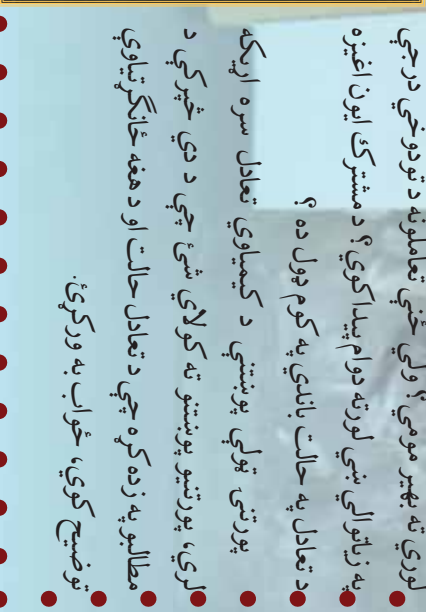 لوري ته بهير مومي؟ ولي ځني تعاملونه د تودوخي درجي
په زياتوالي ښي لورته دوام پيداکوي؟ د مشترک ايون اغيزه
د تعادل په حالت باندي په کوم ډول ده ؟
پورتنۍ ټولي پوښتني د کيمياوي تعادل سره اړيکه
لري، پورتنيو پوښتنو ته کولای شئ چي د دې څپرکي د
مطالبو په زده کړه چي د تعادل حالت او د هغه ځانګړتياوي
توضيح کوي، ځواب به ورکړئ.